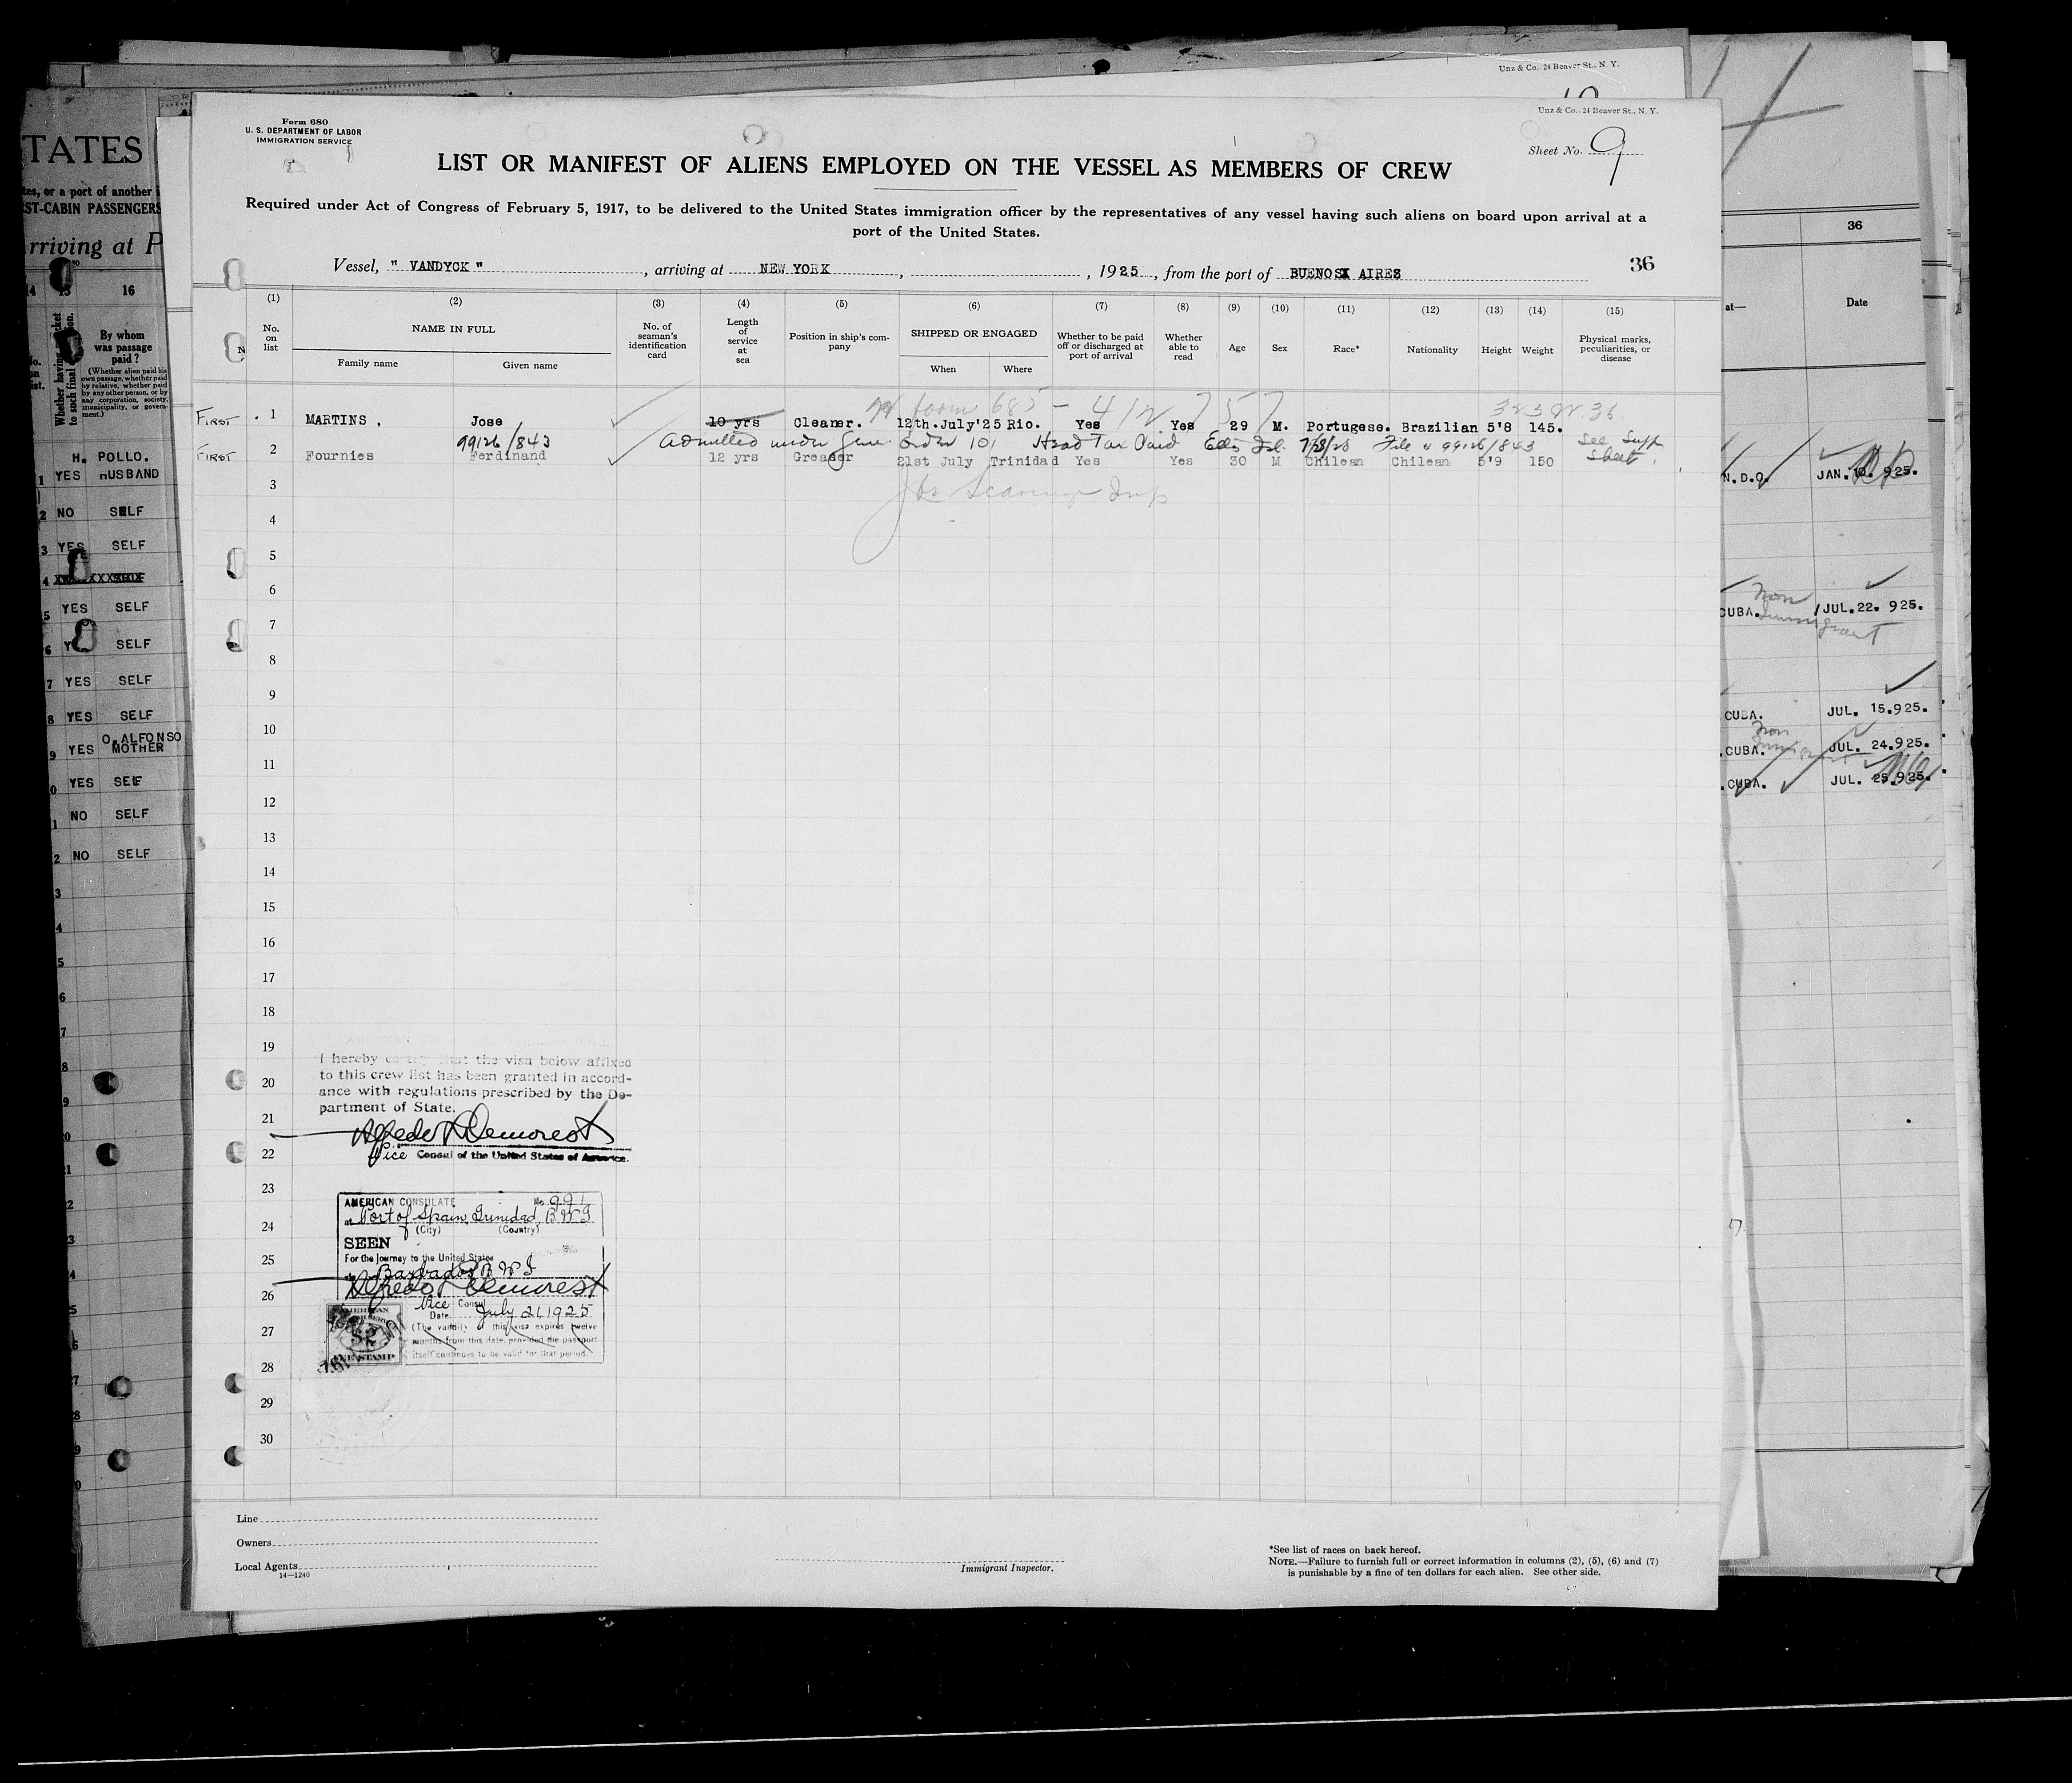 Unz & Co., 24 Beaver St., N. Y.
Form 680
U. S. DEPARTMENT OF LABOR
IMMIGRATION SERVICE
Unz & Co., 24 Beaver St., N. Y.
Sheet No. 9
LIST OR MANIFEST OF ALIENS EMPLOYED ON THE VESSEL AS MEMBERS OF CREW
Required under Act of Congress of February 5, 1917, to be delivered to the United States immigration officer by the representatives of any vessel having such aliens on board upon arrival at a
port of the United States.
Vessel, " VANDYCK ", arriving at NEW YORK, , 1925, from the port of BUENOS AIRES
36
(1) (2) (3) (4) (5) (6) (7) (8) (9) (10) (11) (12) (13) (14) (15)
No. on list
NAME IN FULL
Family name Given name
No. of seaman's identification card
Length of service at sea
Position in ship's company
SHIPPED OR ENGAGED
When Where
Whether to be paid off or discharged at port of arrival
Whether able to read
Age
Sex
Race*
Nationality
Height
Weight
Physical marks, peculiarities, or disease
form 685 - 4/
FIRST 1 MARTINS , Jose 10 yrs Cleaner. 12th.July'25 Rio. Yes Yes 29 M. Portugese. Brazilian 5'8 145.
99126/843 Admitted under order 101 Head Tax Paid File 99126/843 See Supp
FIRST 2 Fournies Ferdinand 12 yrs Greaser 21st July Trinidad Yes Yes 30 M Chilean Chilean 5'9 150 Sheet.
3
4
5
6
7
8
9
10
11
12
13
14
15
16
17
18
19
20
21
22
23
24
25
26
27
28
29
30
I hereby certify that the visa below affixed
to this crew list has been granted in accord-
ance with regulations prescribed by the De-
partment of State.
Alfredo Demorest
Vice Consul of the United States of America.
AMERICAN CONSULATE No.
at Port of Spain, Trinidad, B W I
(City) (Country)
SEEN
For the journey to the United States
Barbados B W I
Alfredo Demorest
Vice Consul
Date July 21, 1925
(The validity of this visa expires twelve
months from this date, provided the passport
itself continues to be valid for that period.
Line
Owners
Local Agents
14—1240
Immigrant Inspector.
*See list of races on back hereof.
NOTE.—Failure to furnish full or correct information in columns (2), (5), (6) and (7)
is punishable by a fine of ten dollars for each alien. See other side.
TATES
tes, or a port of another
ST-CABIN PASSENGERS
rriving at P
16
By whom was passage paid?
(Whether alien paid his own passage, whether paid by relative, whether paid by any other person, or by any corporation, society, municipality, or government.)
H. POLLO.
1 YES HUSBAND
2 NO SELF
3 YES SELF
4
5 YES SELF
6 SELF
7 YES SELF
8 YES SELF
O. ALFONSO
9 YES MOTHER
0 YES SELF
1 NO SELF
2 NO SELF
36
at— Date
N.D.O. JAN.10.925.
CUBA. Non Immigrant JUL.22. 925.
CUBA. JUL. 15.925.
CUBA. Non JUL. 24.925.
CUBA. JUL. 25.925.